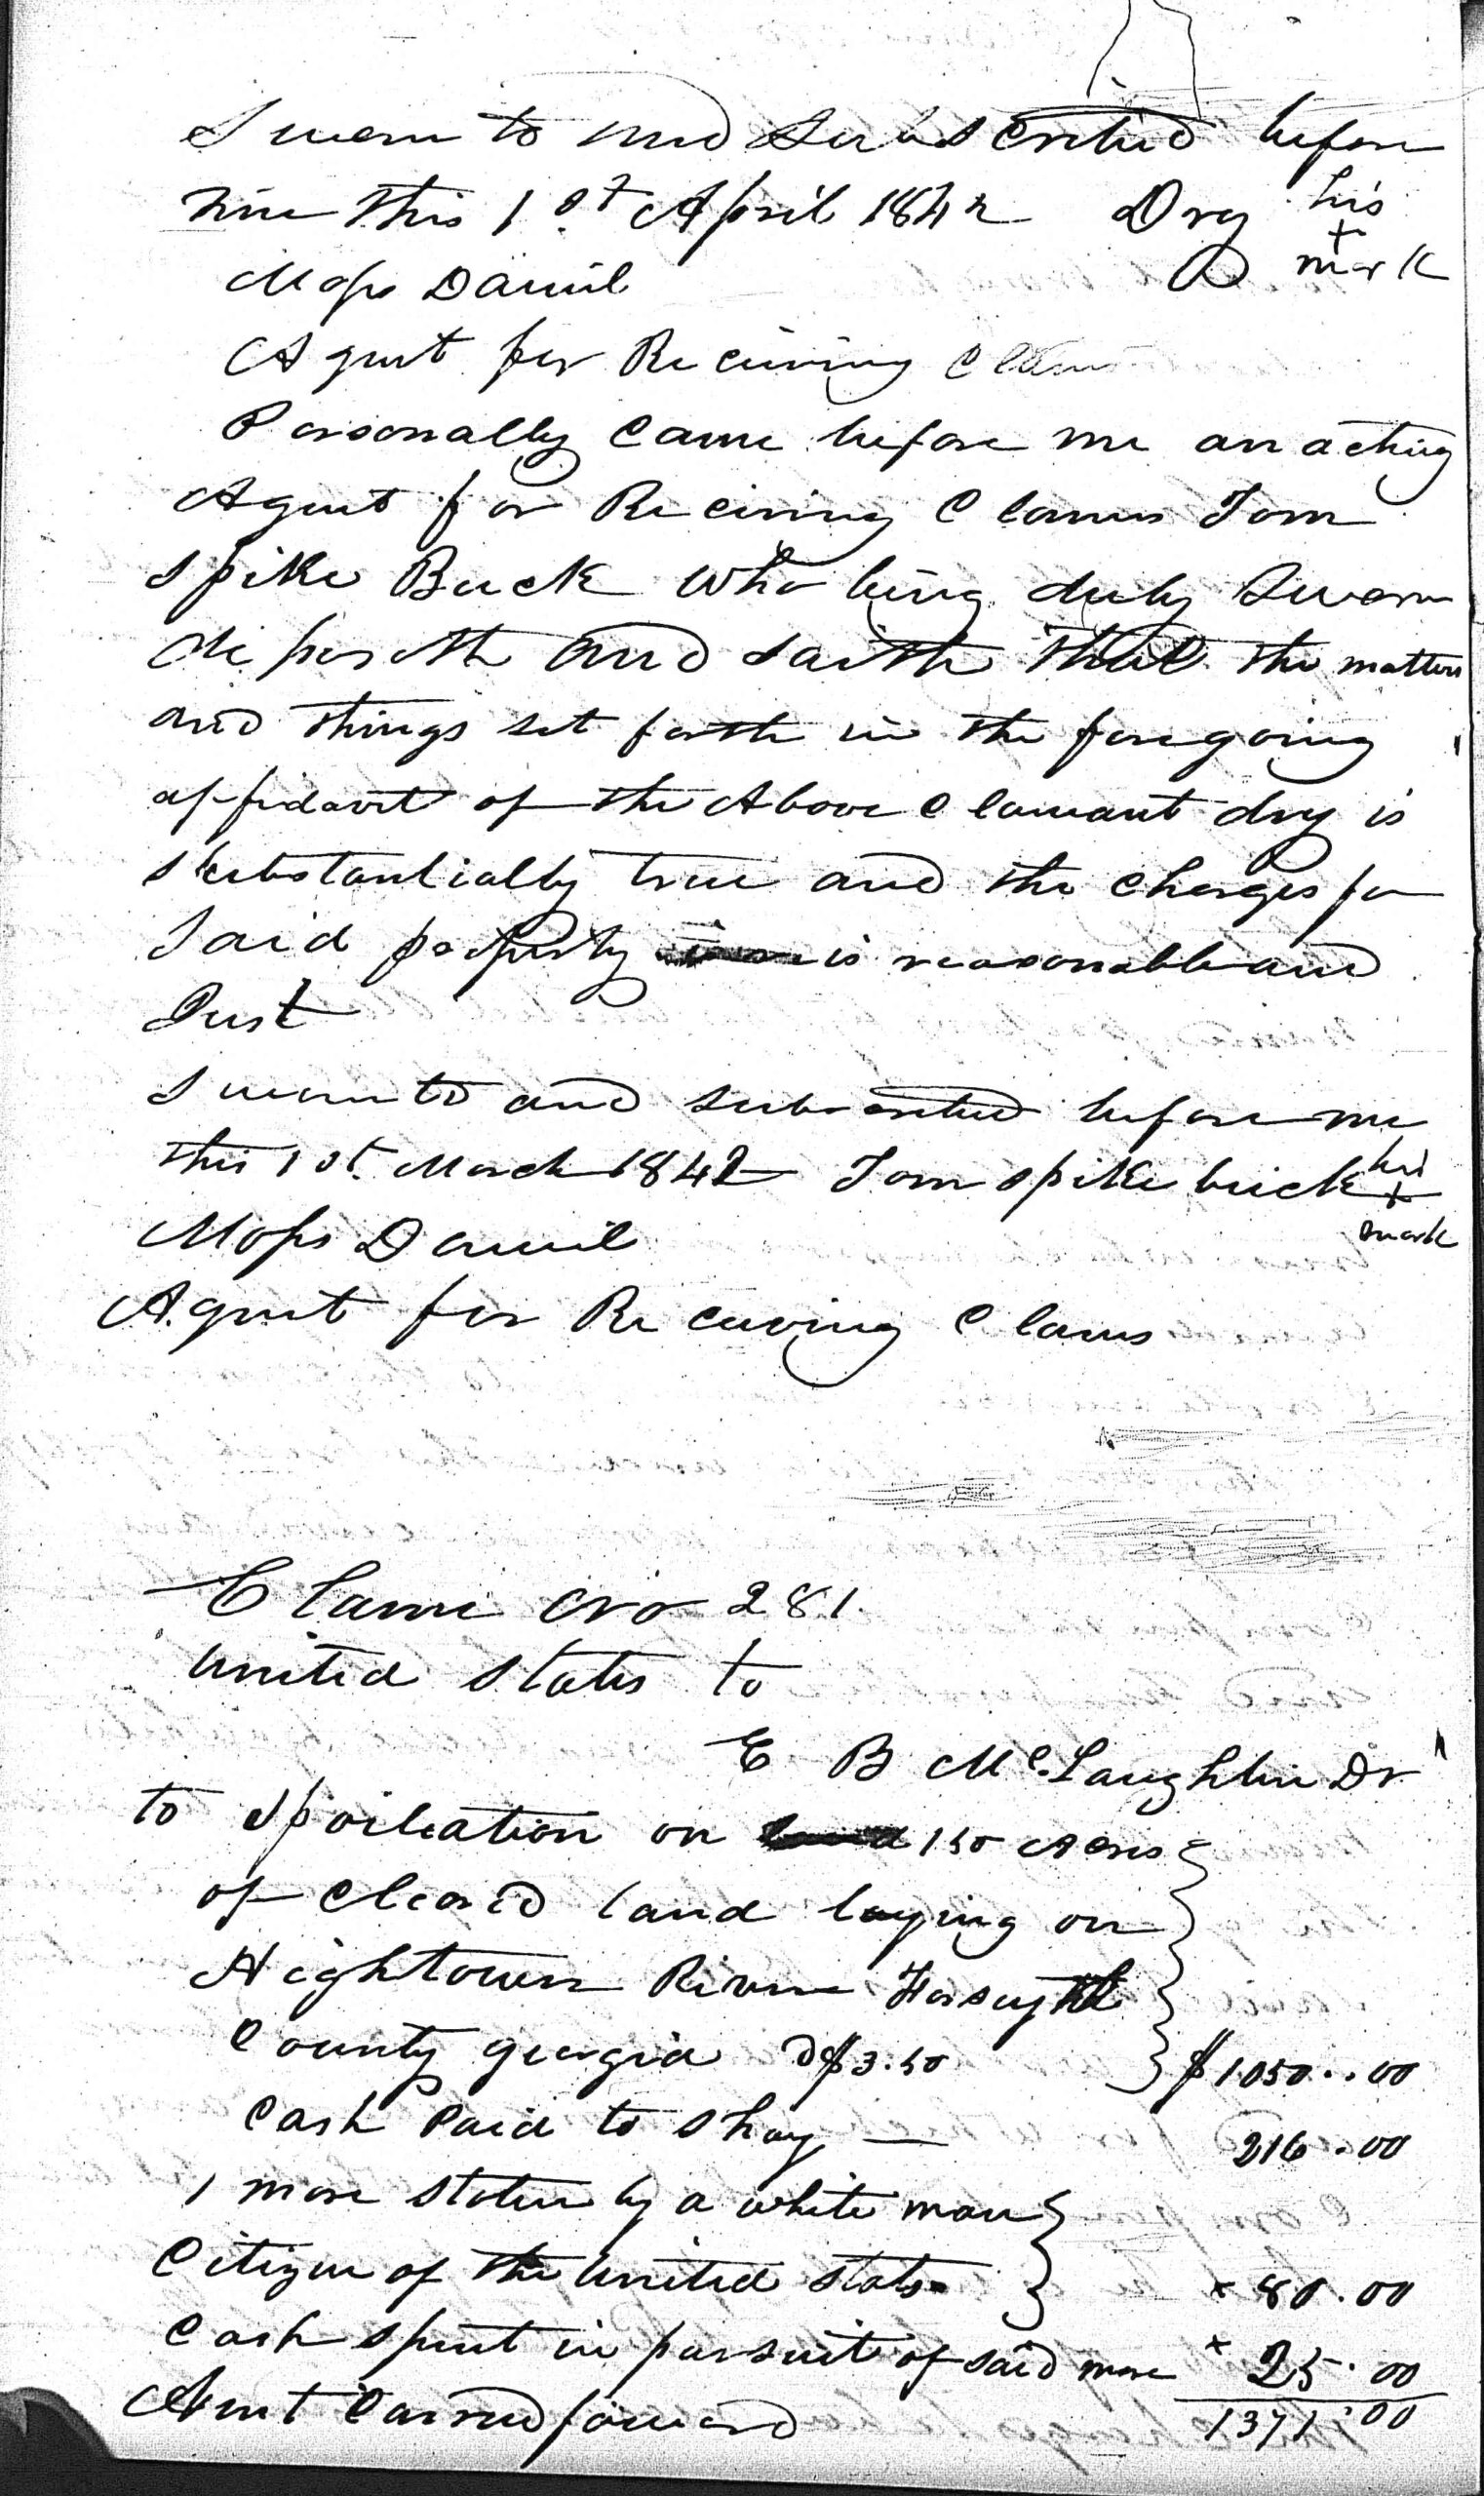 Sworn to and Subscribed before
me this 1st April 1842 Dry his
+
mark
Moses Daniel
Agent for Receiving Claims
Personally Came before me an acting
Agent for Receiving Claims Tom
Spike Buck Who being duly Sworn
deposeth and saith that the matters
and things set forth in the foregoing
affidavit of the Above Clamant dry is
substantially true and the Charges for
Said property is reasonable and
Just
Sworn to and subscribed before me
this 1st March 1842 Tom spike buck his
+
mark
Moses Daniel
Agent for Receiving Claims
Claim No 281
United States to
E B McLaughlin Dr
to Spoliation on 150 Acres
of Cleared land laying on
Hightower River Forsyth
County georgia @ $3.50 $1050..00
Cash Paid to Shay — 216.00
1 mare stolen by a white man
Citizen of the United States × 80.00
Cash spent in pursuit of said mare × 25.00
Amt Carried forward 1371.00